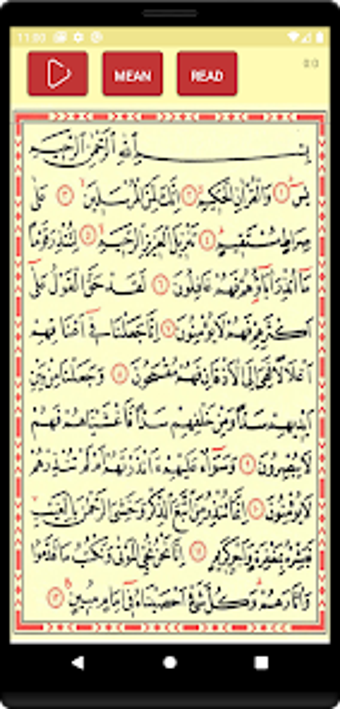 11:00
MEAN READ 0:0
بِسْمِ اللهِ الرَّحْمٰنِ الرَّحِيمِ
يٰسٓ ۝١ وَالْقُرْاٰنِ الْحَكِيمِ ۝٢ اِنَّكَ لَمِنَ الْمُرْسَلِينَ ۝٣ عَلٰى
صِرَاطٍ مُسْتَقِيمٍ ۝٤ تَنْزِيلَ الْعَزِيزِ الرَّحِيمِ ۝٥ لِتُنْذِرَ قَوْمًا
مَٓا اُنْذِرَ اٰبَٓاؤُ۬هُمْ فَهُمْ غَافِلُونَ ۝٦ لَقَدْ حَقَّ الْقَوْلُ عَلٰٓى
اَكْثَرِهِمْ فَهُمْ لَا يُؤْمِنُونَ ۝٧ اِنَّا جَعَلْنَا فٓى اَعْنَاقِهِمْ
اَغْلَالًا فَهِىَ اِلَى الْاَذْقَانِ فَهُمْ مُقْمَحُونَ ۝٨ وَجَعَلْنَا مِنْ بَيْنِ
اَيْدِيهِمْ سَدًّا وَمِنْ خَلْفِهِمْ سَدًّا فَاَغْشَيْنَاهُمْ فَهُمْ
لَا يُبْصِرُونَ ۝٩ وَسَوَٓاءٌ عَلَيْهِمْ ءَاَنْذَرْتَهُمْ اَمْ لَمْ تُنْذِرْهُمْ
لَا يُؤْمِنُونَ ۝١٠ اِنَّمَا تُنْذِرُ مَنِ اتَّبَعَ الذِّكْرَ وَخَشِىَ الرَّحْمٰنَ بِالْغَيْبِ
فَبَشِّرْهُ بِمَغْفِرَةٍ وَاَجْرٍ كَرِيمٍ ۝١١ اِنَّا نَحْنُ نُحْيِى الْمَوْتٰى وَنَكْتُبُ مَا قَدَّمُوا
وَاٰثَارَهُمْ وَكُلَّ شَىْءٍ اَحْصَيْنَاهُ فٓى اِمَامٍ مُبِينٍ ۝١٢